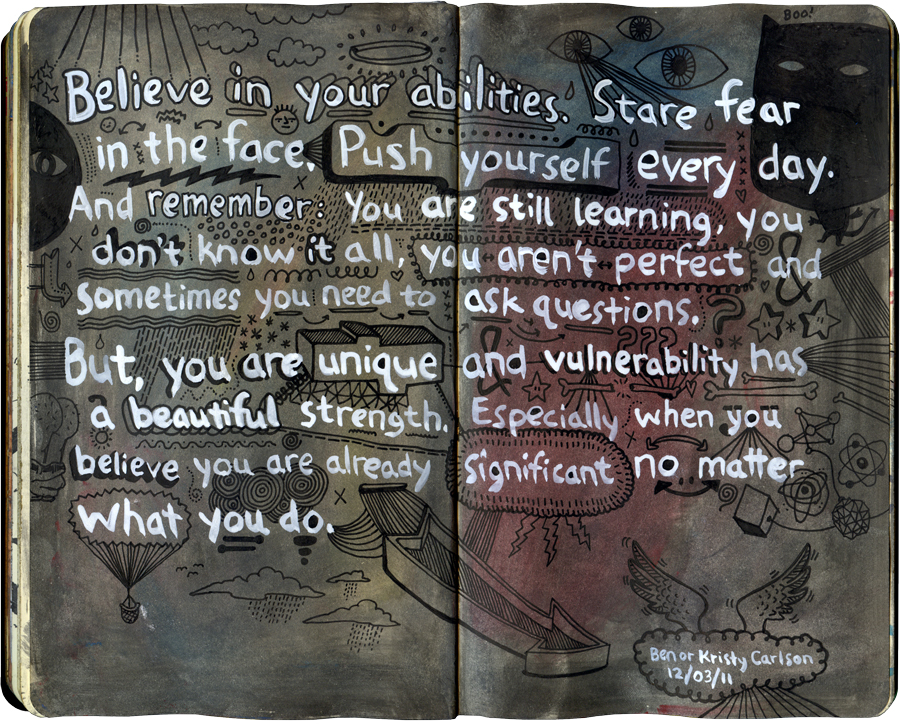 Boo!
Believe in your abilities. Stare fear
in the face. Push yourself every day.
And remember: You are still learning, you
don't know it all, you aren't perfect and
sometimes you need to ask questions.
But, you are unique and vulnerability has
a beautiful strength. Especially when you
believe you are already significant no matter
what you do.
Ben or Kristy Carlson
12/03/11